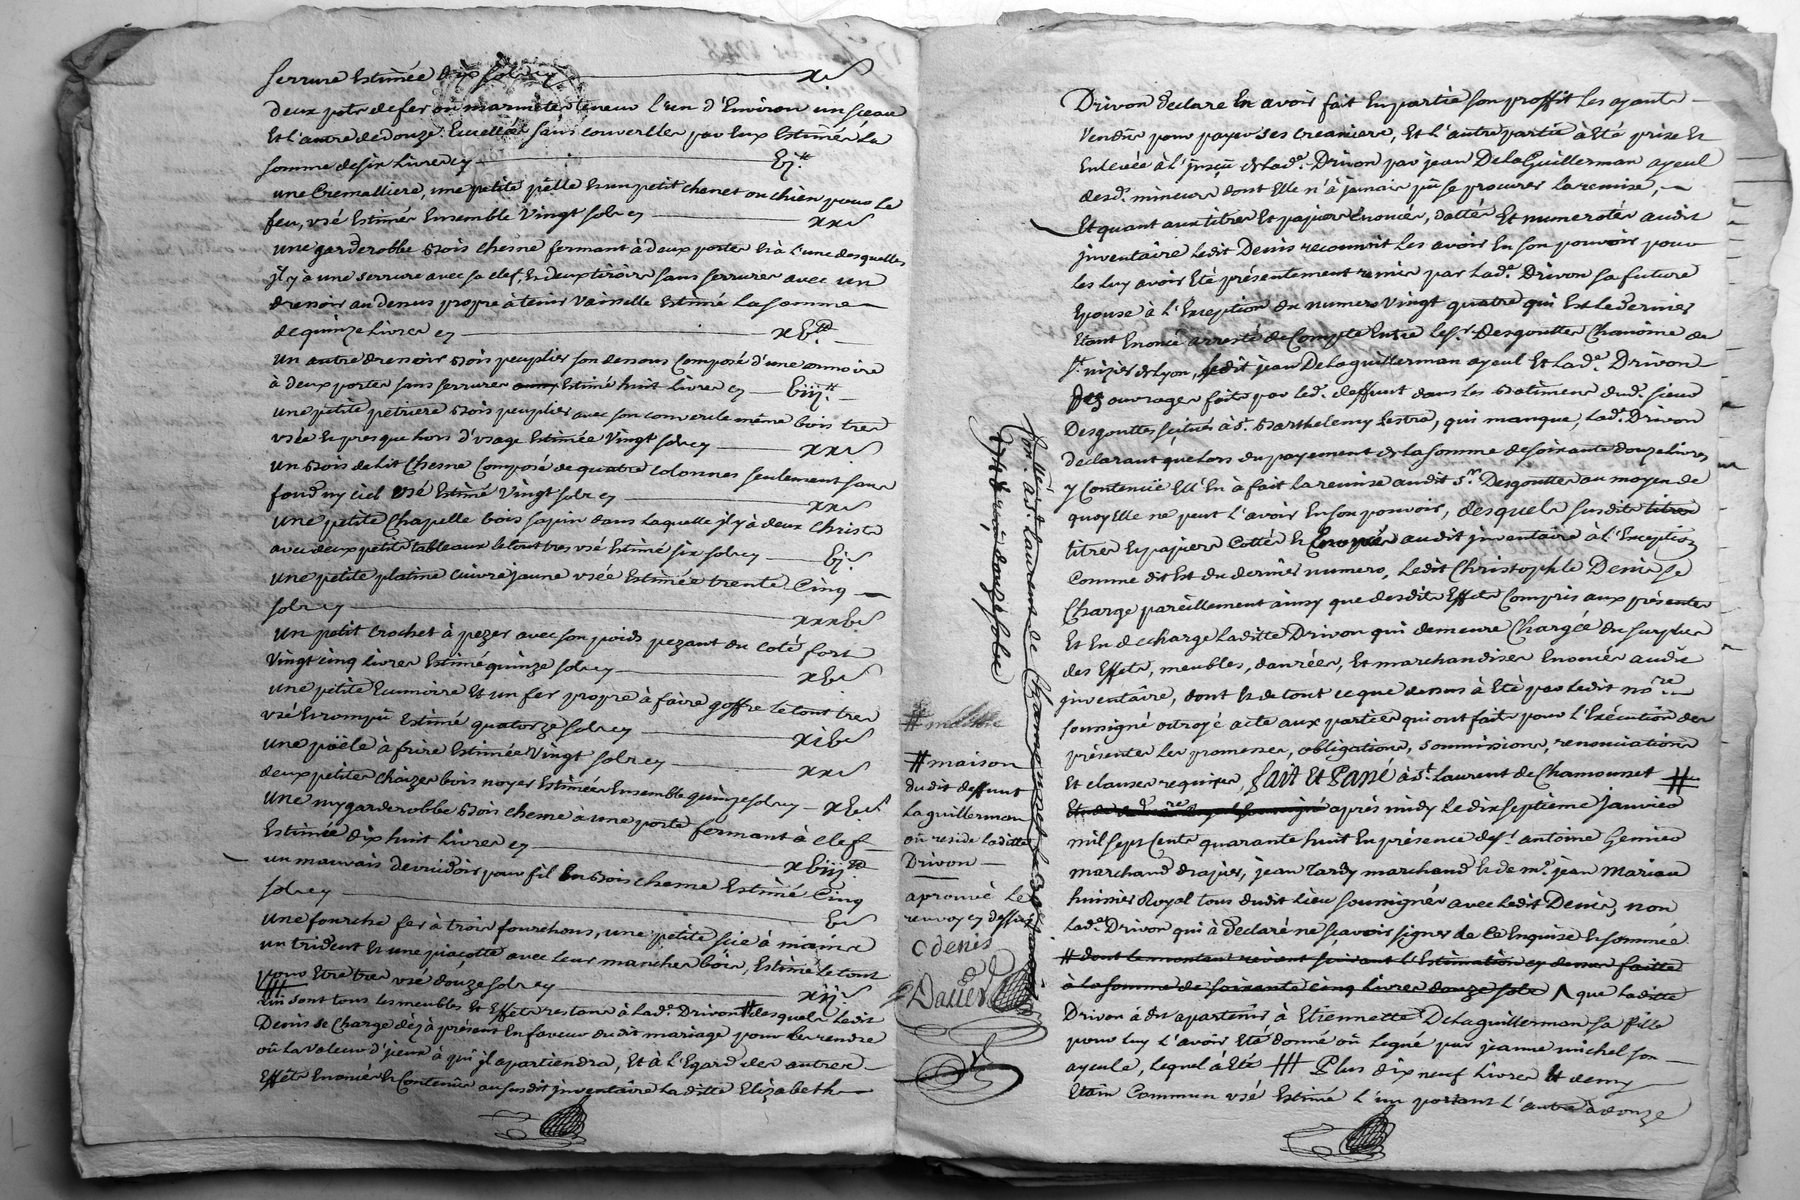 serrure Estimée dix sols cy x s
deux pots de fer ou marmites teneur l'un d'Environ un sceau
Et l'autre de douze Ecuellées sans couvercles par Eux Estimés la
somme de six Livres cy bj ₶
une Cremalliere, une petite pelle Et un petit chenet ou chien pour le
feu, usé Estimés Ensemble Vingt sols cy xx s
une garderobbe bois chesne fermant à deux portes Et à l'une desquelles
il y à une serrure avec sa clef, Et deux tiroirs sans serrures avec un
dressoir au dessus propre à tenir Vaisselle Estimé La somme
de quinze Livres cy xb ₶
un autre dressoir bois peuplier son dessous Composé d'une armoire
à deux portes sans serrures Estimé huit Livres cy biij ₶
une petite petriere bois peuplier avec son couvercle même bois tres
usée Et presque hors d'usage Estimée Vingt sols cy xx s
un bois de Lit Chesne Composé de quatre colonnes seulement sans
fond ny ciel usé Estimé Vingt sols cy xx s
une petite Chapelle bois sapin dans laquelle il y à deux Christs
avec deux petits tableaux le tout tres usé Estimé six sols cy bj s
une petite platine cuivre jaune usée Estimée trente Cinq
sols cy xxxb s
un petit crochet à pezer avec son poids pezant du coté fort
Vingt cinq livres Estimé quinze sols cy xb s
une petite Ecumoire Et un fer propre à faire goffre le tout tres
usé Et rompû Estimé quatorze sols cy xib s
une poële à frire Estimée Vingt sols cy xx s
deux petites chaizes bois noyer Estimées Ensemble quinze sols cy xb s
une mygarderobbe bois chesne à une porte fermant à clef
Estimée dix huit Livres cy xbiij ₶
un mauvais devuidoir pour fil En bois chesne Estimé Cinq
sols cy b s
une fourche fer à trois fourchons, une petite scie à mains
un trident Et une piacotte avec leurs manches bois, Estimé le tout
pour Etre tres usé douze sols cy xij s
qui sont tous les meubles Et Effets restans à Lad. Drivon # lesquels Ledit
Denis se Charge dès à présent En faveur dudit mariage pour les rendre
où la valeur d'iceux à qui il apartiendra, Et à l'Egard des autres
Effets Enoncés Et Contenûs au susdit inventaire Laditte Elizabeth
# maison
dudit deffunt
Laguillerman
où reside laditte
Drivon
aprouvé le
renvoy cy dessus
C denis
Daveze
Con.llé à S.t Laurent de Chamousset le
1748 reçû douze sols
Drivon declare En avoir fait En partie son proffit Les ayants
Vendûs pour payer ses creanciers, Et l'autre partie à Eté prise Et
Enlevée à l'insçû de Lad.e Drivon par jean DeLaGuillerman ayeul
desd. mineurs dont Elle n'à jamais pû se procurer la remise,
Et quant aux titres Et papiers Enoncés, dattés Et numerotés audit
inventaire Ledit Denis reconnoit les avoir En son pouvoir pour
les luy avoir Eté présentement remis par Lad.e Drivon sa future
Epouse à l'Exception du numero Vingt quatre qui Est le dernier
Etant Enoncé arresté de Compte Entre Le S.r Desgouttes Chanoine de
S.t nizier de Lyon, Ledit jean DeLaguillerman ayeul Et Lad.e Drivon
des ouvrages faits par led. deffunt dans les batiments dud. sieur
Desgouttes scitués à S.t Barthelemy Lestra, qui manque, Lad.e Drivon
declarant que lors du payement de la somme de soixante douze Livres
y Contenüe Ell'En à fait la remise audit S.r Desgouttes au moyen de
quoy Elle ne peut l'avoir En son pouvoir, desquels susdits titres
titres Et papiers Cottés Et Enoncés audit inventaire à l'Exception
comme dit Est du dernier numero, Ledit Christophle Denis se
Charge pareillement ainsy que desdits Effets Compris aux présentes
Et En decharge Laditte Drivon qui demeure Chargée du surplus
des Effets, meubles, danrées, Et marchandises Enoncés audit
inventaire, dont Et de tout ce que dessus à Eté par Ledit no.re
soussigné octroyé acte aux parties qui ont fait pour l'Exécution des
présentes les promesses, obligations, soumissions, renonciations
Et clauses requises, fait Et Passé à S.t Laurent de Chamousset #
après midy Le dix septieme janvier
mil sept Cents quarante huit En présence de S.r antoine Gemier
marchand drapier, jean Tardy marchand Et de m.e jean Mariau
huissier Royal tous dudit Lieu soussignés avec Ledit Denis, non
Lad.e Drivon qui à declaré ne sçavoir signer de ce Enquise Et sommée
# dont le montant revient suivant l'Estimation cy dessus faitte
à la somme de soixante cinq livres douze sols ∧ que laditte
Drivon à dit apartenir à Etiennette DeLaguillerman sa fille
pour luy l'avoir Eté donné où legué par jeanne michel son
ayeule, lequel à Eté ### Plus dix neuf Livres Et demy
Etain Commun usé Estimé l'un portant l'autre à douze